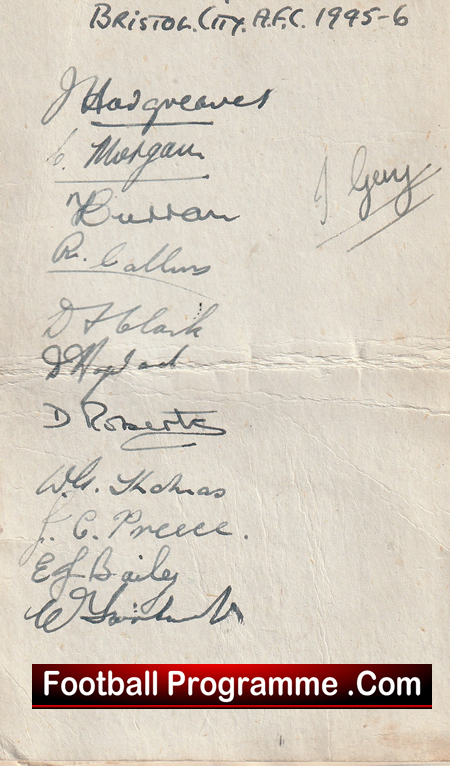 BRISTOL. CITY. A.F.C. 1945-6
J Hargreaves
C. Morgan
Curran
J. Gerry
R. Collins
D F Clark
D
D Roberts
W.G. Thomas
J. C. Preece.
E J Bailey
W
Football Programme .Com